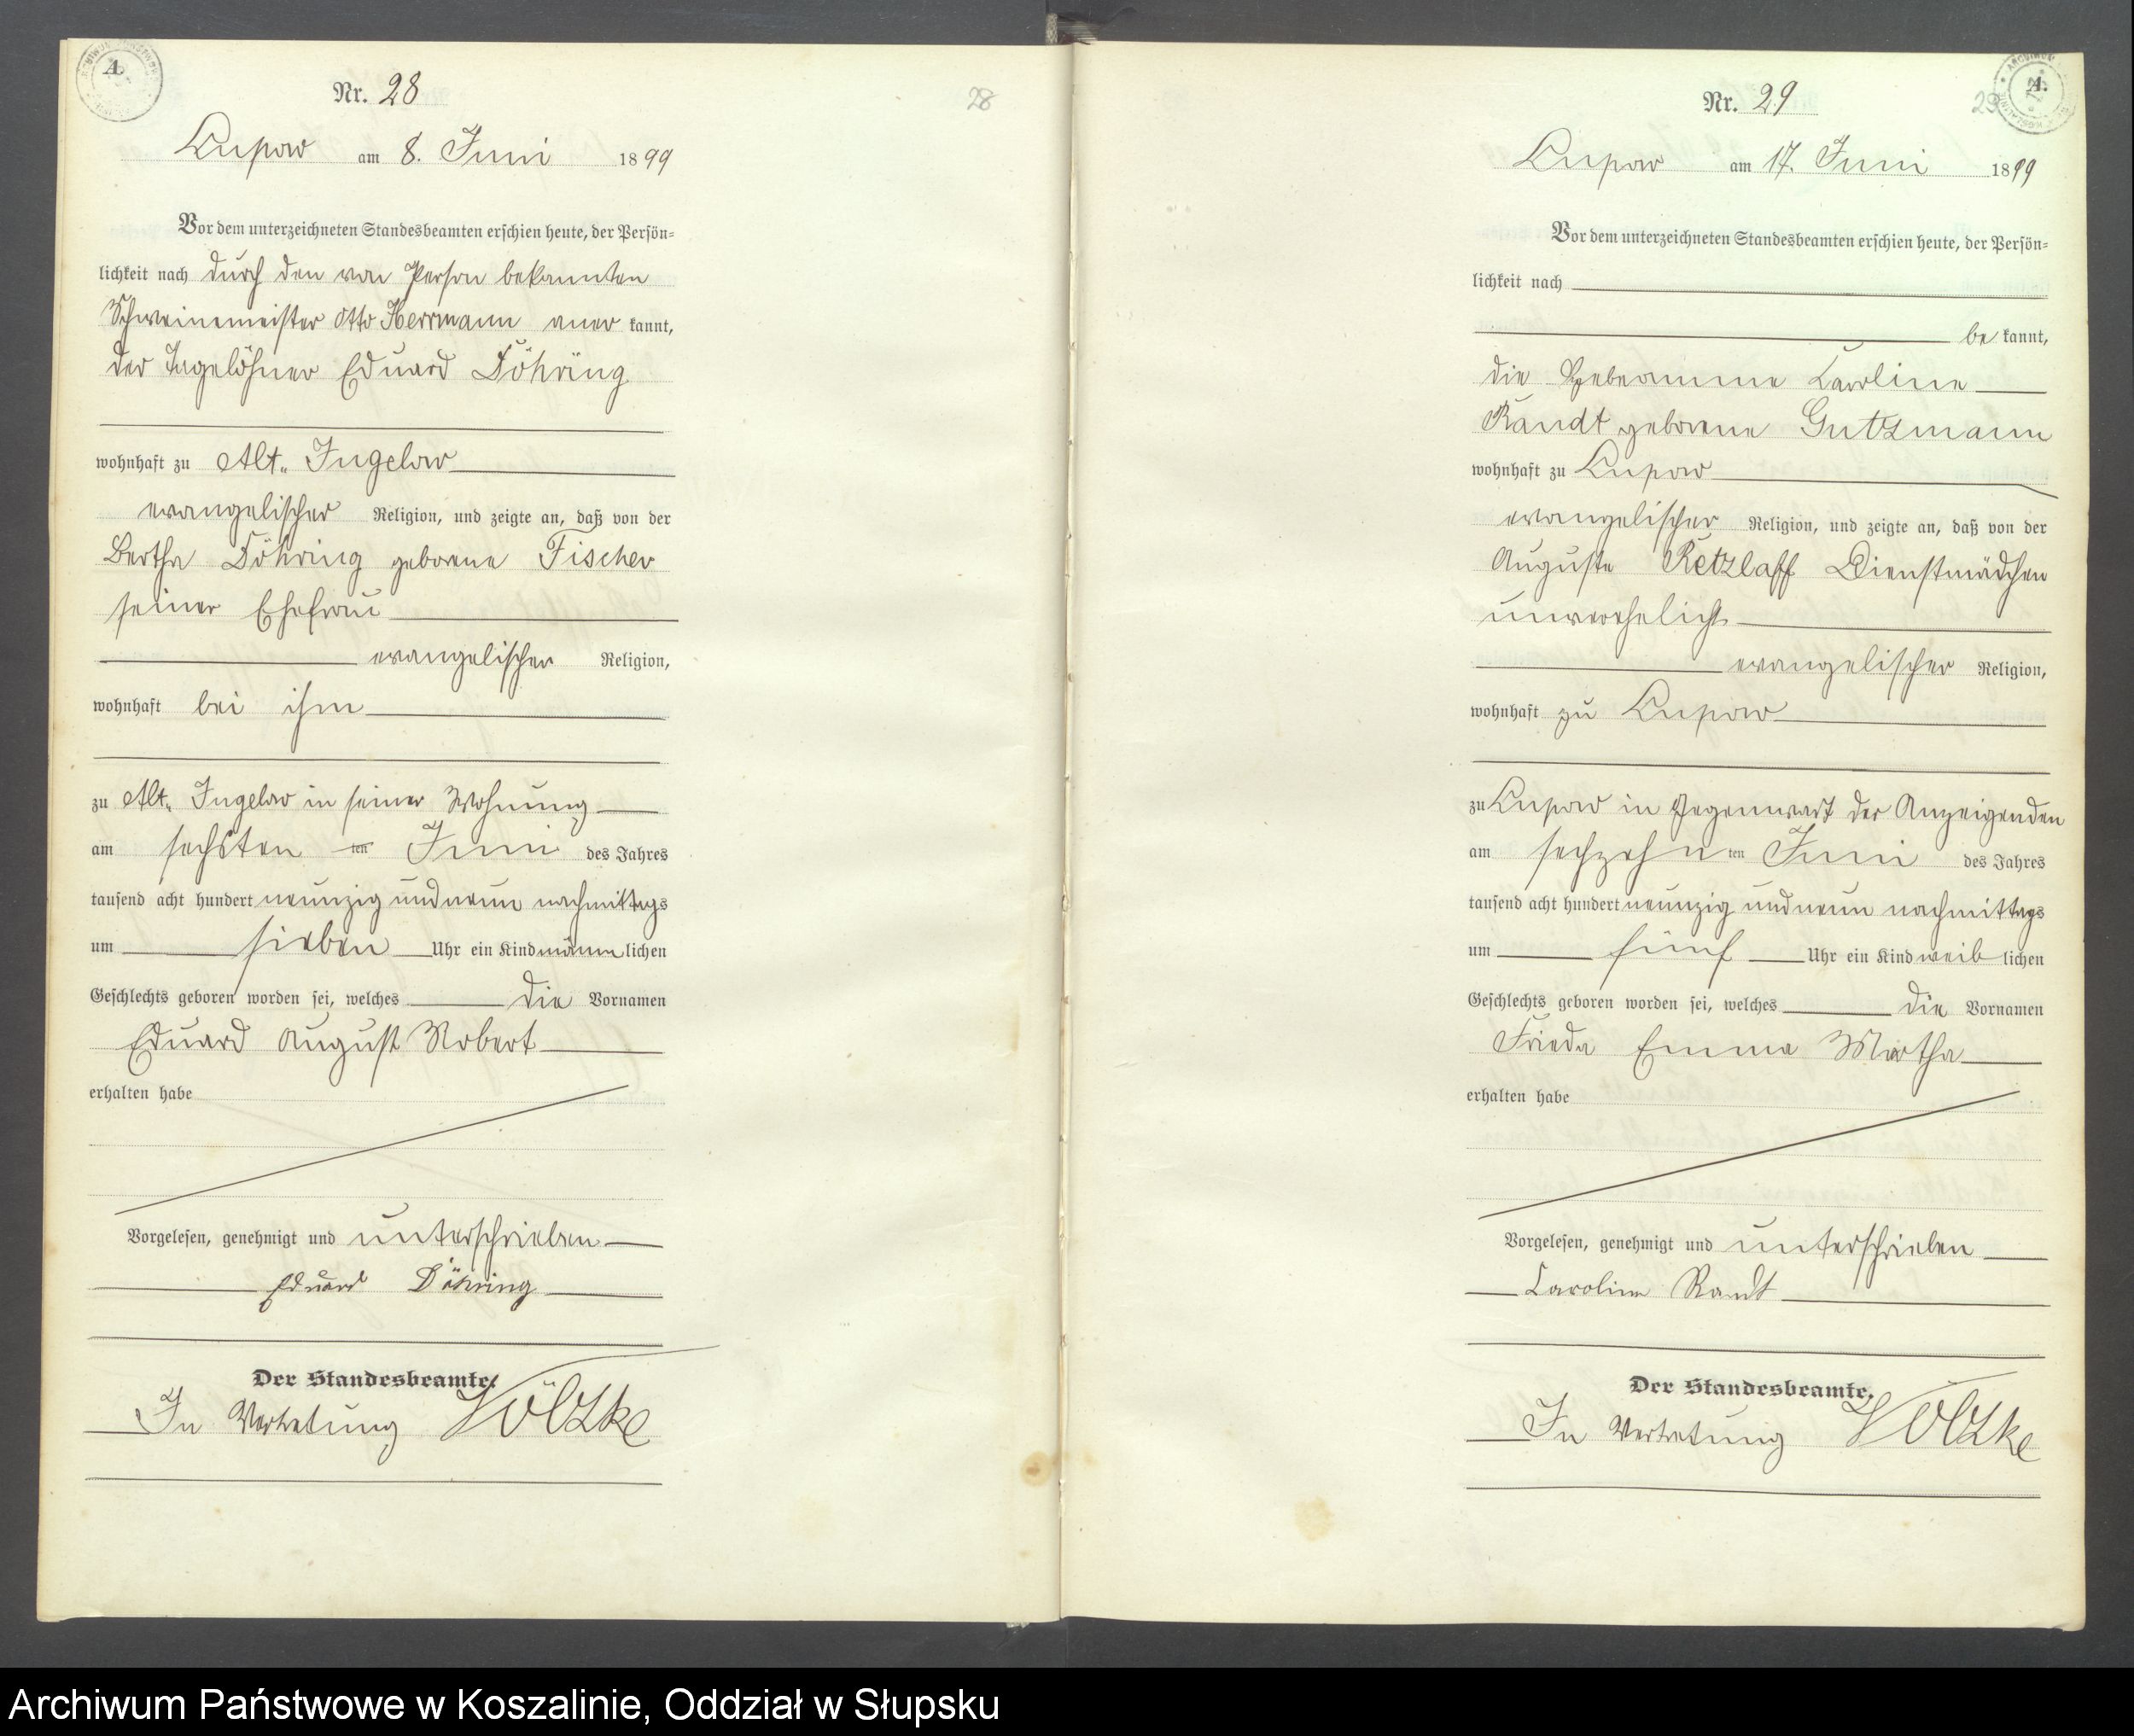 A.
Nr. 28
28
Lupow am 8. Juni 1899
Vor dem unterzeichneten Standesbeamten erschien heute, der Persön=
lichkeit nach durch den von Person bekannten
Schweinemeister Otto Herrmann aner kannt,
der Tagelöhner Eduard Döhring
wohnhaft zu Alt-Jugelow
evangelischer Religion, und zeigte an, daß von der
Bertha Döhring geborene Fischer
seiner Ehefrau
evangelischer Religion,
wohnhaft bei ihm
zu Alt-Jugelow in seiner Wohnung
am sechsten ten Juni des Jahres
tausend acht hundert neunzig und neun nachmittags
um sieben Uhr ein Kind männlichen
Geschlechts geboren worden sei, welches die Vornamen
Eduard August Robert
erhalten habe
Vorgelesen, genehmigt und unterschrieben
Eduard Döhring
Der Standesbeamte.
In Vertretung Völzke
Nr. 29
29
A.
Lupow am 17. Juni 1899
Vor dem unterzeichneten Standesbeamten erschien heute, der Persön=
lichkeit nach
be kannt,
die Hebeamme Karoline
Randt geborene Gutzmann
wohnhaft zu Lupow
evangelischer Religion, und zeigte an, daß von der
Auguste Retzlaff Dienstmädchen
unverehelicht
evangelischer Religion,
wohnhaft zu Lupow
zu Lupow in Gegenwart der Anzeigenden
am sechzehn ten Juni des Jahres
tausend acht hundert neunzig und neun nachmittags
um fünf Uhr ein Kind weiblichen
Geschlechts geboren worden sei, welches die Vornamen
Frieda Emma Martha
erhalten habe
Vorgelesen, genehmigt und unterschrieben
Caroline Randt
Der Standesbeamte.
In Vertretung Völzke
Archiwum Państwowe w Koszalinie, Oddział w Słupsku